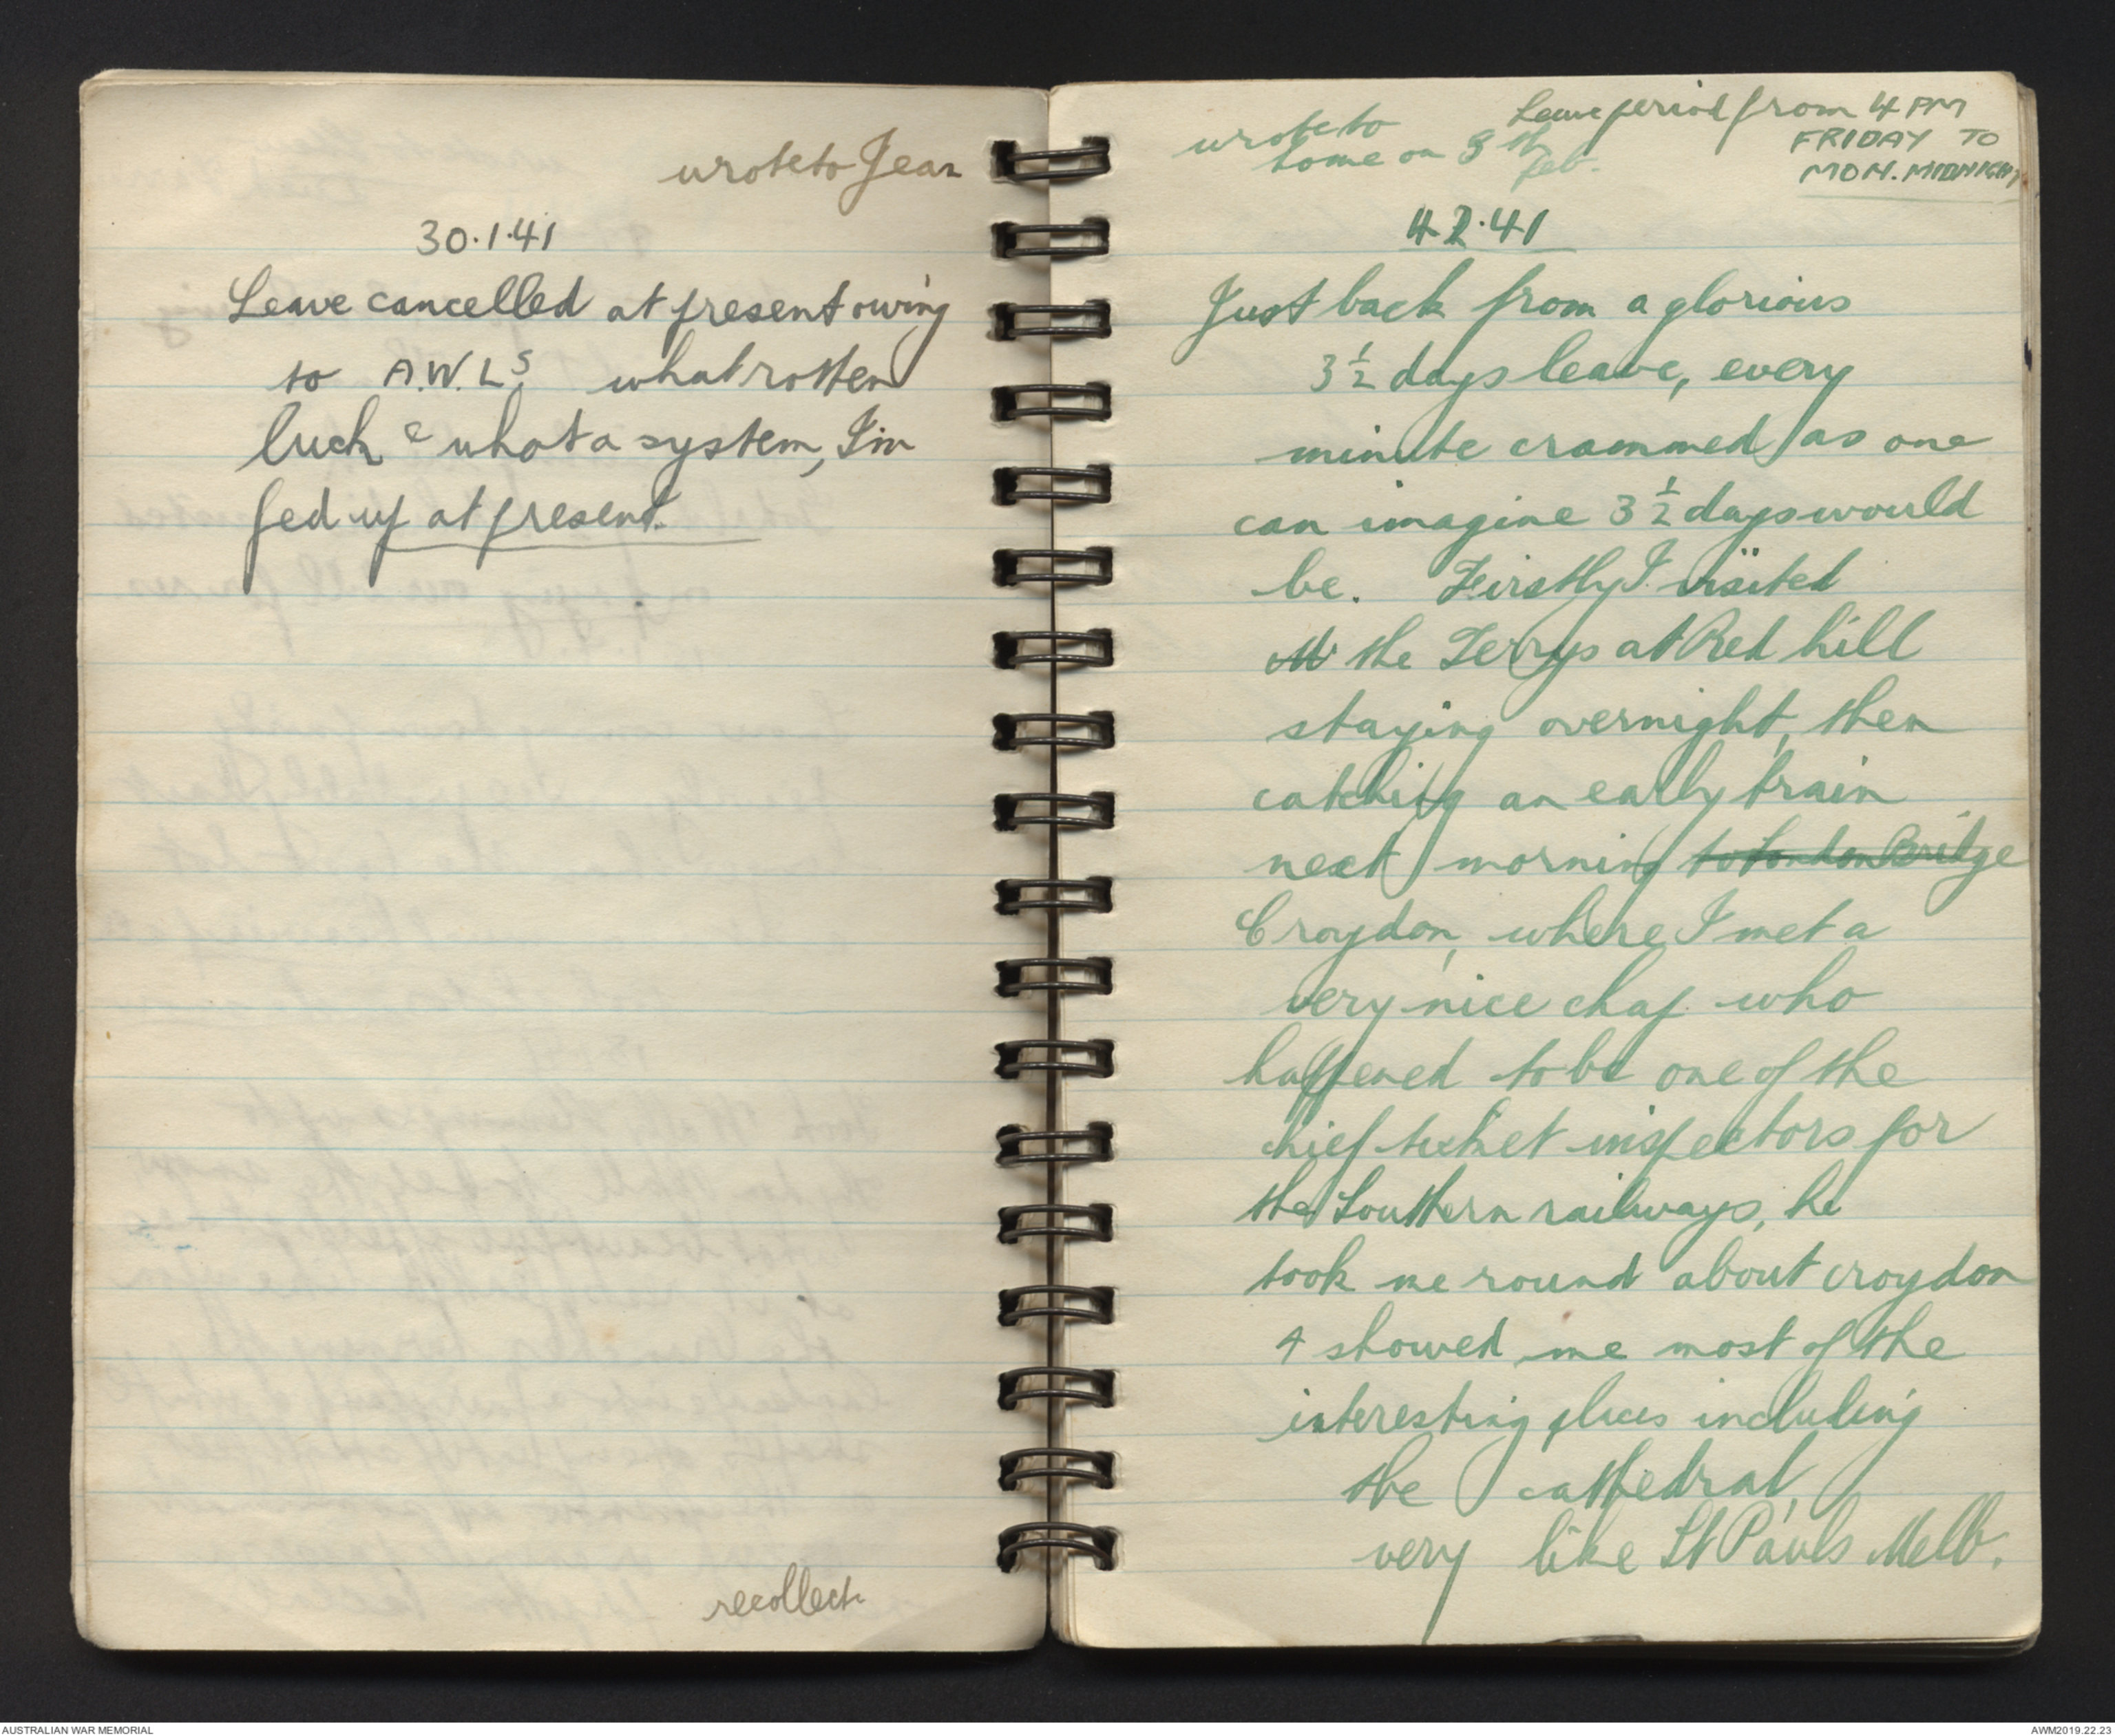 wrote to Jean
30.1.41
Leave cancelled at present owing
to A.W.Ls, what rotten
luck & what a system, I'm
fed up at present.
recollect
wrote to
home on 8th
Feb.
Leave period from 4 PM
FRIDAY TO
MON. MIDNIGHT
4.2.41
Just back from a glorious
3½ days leave, every
minute crammed as one
can imagine 3½ days would
be. Firstly I visited
the Terrys at Red hill
staying overnight, then
catching an early train
next morning to London Bridge
Croydon, where I met a
very nice chap who
happened to be one of the
chief ticket inspectors for
the Southern railways, he
took me round about croydon
& showed me most of the
interesting places including
the cathedral,
very like St Pauls Melb.
AUSTRALIAN WAR MEMORIAL
AWM2019.22.23